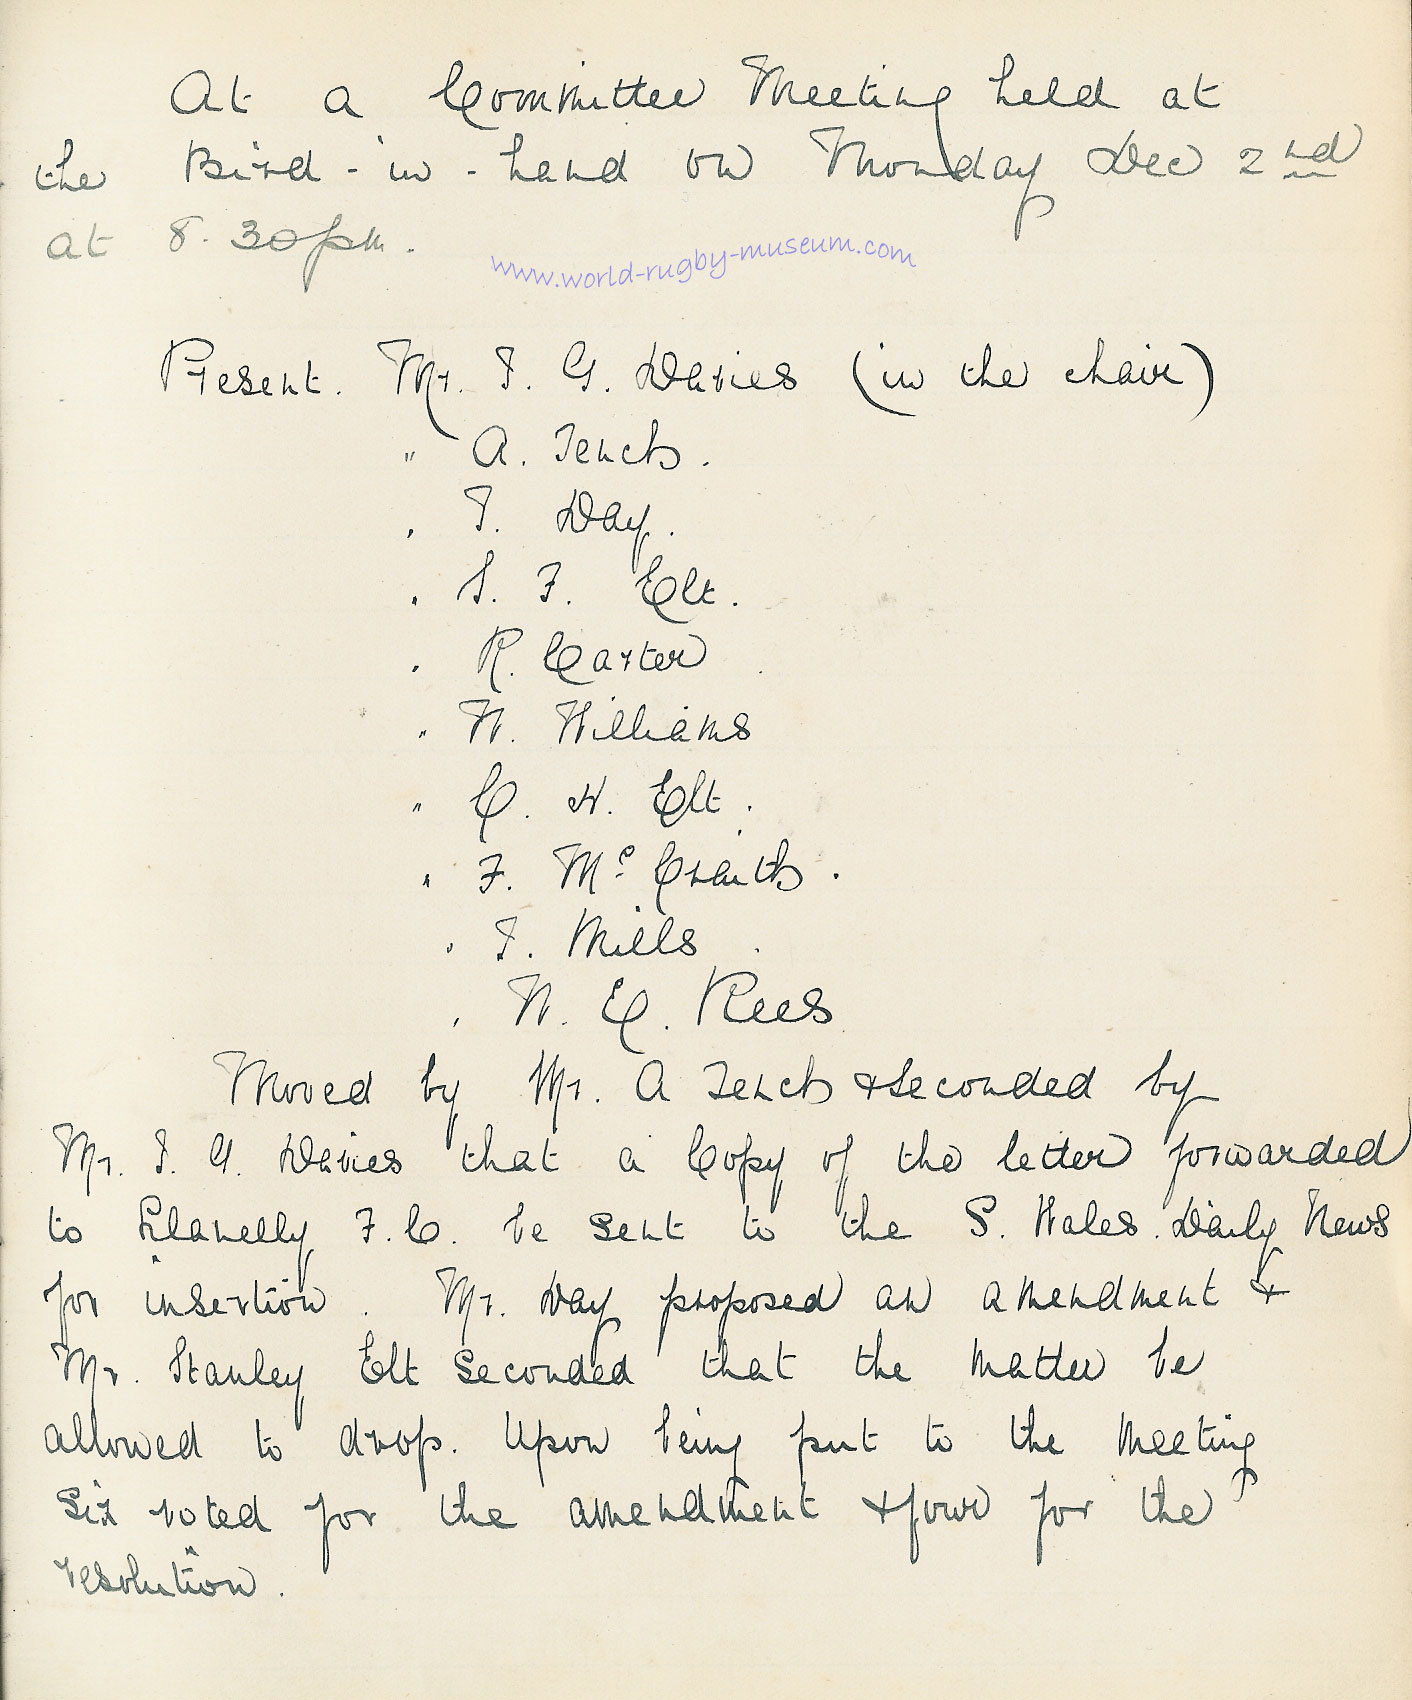 At a Committee Meeting held at
the Bird-in-hand on Monday Dec 2nd
at 8.30pm.
www.world-rugby-museum.com
Present. Mr. T. G. Davies (in the chair)
" A. Tench.
" T. Day.
" S. F. Elt.
" R. Carter
" W. Williams
" C. W. Elt.
" F. Mc Craith.
" T. Mills
" W. E. Rees
Moved by Mr. A Tench & seconded by
Mr. T. G. Davies that a Copy of the letter forwarded
to Llanelly F.C. be sent to the S. Wales. Daily News
for insertion. Mr. Day proposed an amendment &
Mr. Stanley Elt seconded that the matter be
allowed to drop. Upon being put to the meeting
Six voted for the amendment & four for the
resolution.